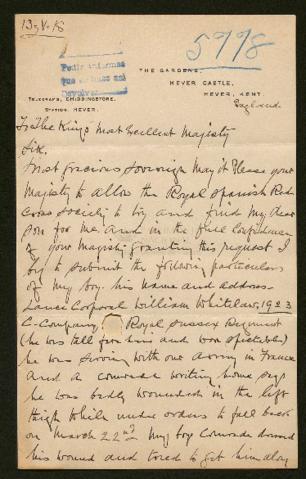 13-V-18
5998
THE GARDENS,
HEVER CASTLE,
HEVER, KENT.
England
TELEGRAMS, CHIDDINGSTONE.
STATION, HEVER.
To The Kings Most Excellent Majesty
Sir.
Most Gracious Sovereign May it Please your
Majesty to allow the Royal Spanish Red
Cross Society to try and find My Dear
Son for me. And in the full Confidence
of your Majesty granting this request I
beg to submit the following particulars
of my boy. his name and address
Lance Corporal William Whitelaw, 1923
C-Company, Royal Sussex Regiment
(he was tall for him and wore spectacles)
he was serving with our Army in France
and a comrade writing home says
he was badly wounded in the left
thigh while under orders to fall back
on March 22nd My boys Comrade dressed
his wound and tried to get him along